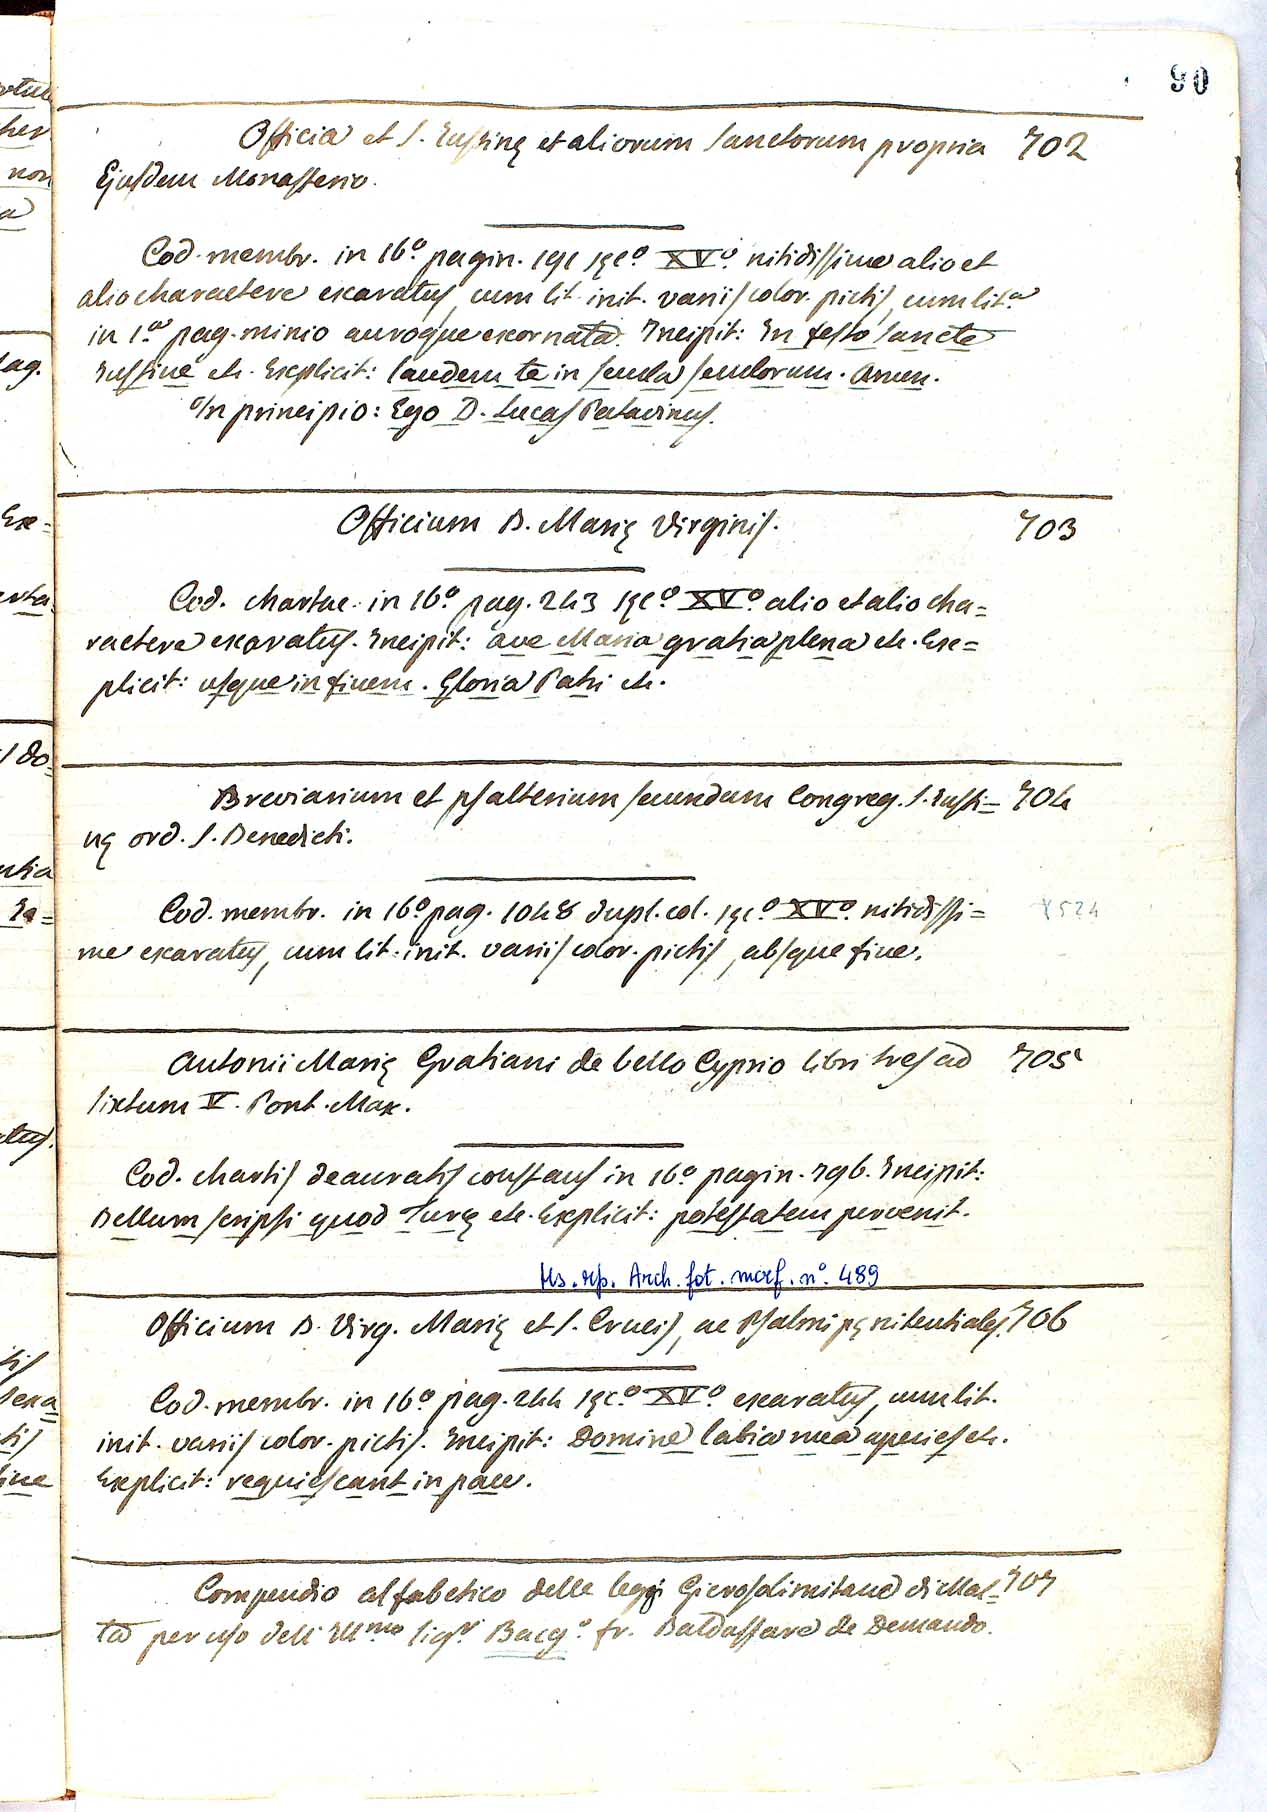 90
Officia et S. Justinę et aliorum Sanctorum propria 702
Ejusdem Monasterio.
Cod. membr. in 16º pagin. 191 sęc.º XVº nitidissime alio et
alio charactere exaratus, cum lit. init. variis color. pictis, cum lit.ª
in 1.ª pag. minio auroque exornata. Incipit: In festo Sancte
Justine etc. Explicit: laudem te in secula seculorum. Amen.
In principio: Ego D. Lucas Patavinus.
Officium B. Marię Virginis. 703
Cod. chartac. in 16º pag. 243 sęc.º XVº alio et alio cha=
ractere exaratus. Incipit: ave Maria gratia plena etc. Ex=
plicit: usque in finem. Gloria Patri etc.
Breviarium et psalterium secundum Congreg. S. Justi= 704
nę ord. S. Benedicti.
Cod. membr. in 16º pag. 1048 dupl. col. sęc.º XVº nitidissi=
me exaratus, cum lit. init. variis color. pictis, absque fine.
Antonii Marię Gratiani de bello Cyprio libri tres ad 705
Sixtum V. Pont. Max.
Cod. chartis deauratis constans in 16º pagin. 796. Incipit:
Bellum scripsi quod Turcę etc. Explicit: potestatem pervenit.
Ms. rip. Arch. fot. mcrf. nº. 489
Officium B. Virg. Marię et S. Crucis, ac Psalmi pęnitentiales. 706
Cod. membr. in 16º pag. 244 sęc.º XVº exaratus, cum lit.
init. variis color. pictis. Incipit: Domine labia mea aperies etc.
Explicit: requiescant in pace.
Compendio alfabetico delle leggi Gierosolimitane di Mal= 707
ta per uso dell' Ill.mo Sig.r Bacg.º fr. Baldassare de Demando.